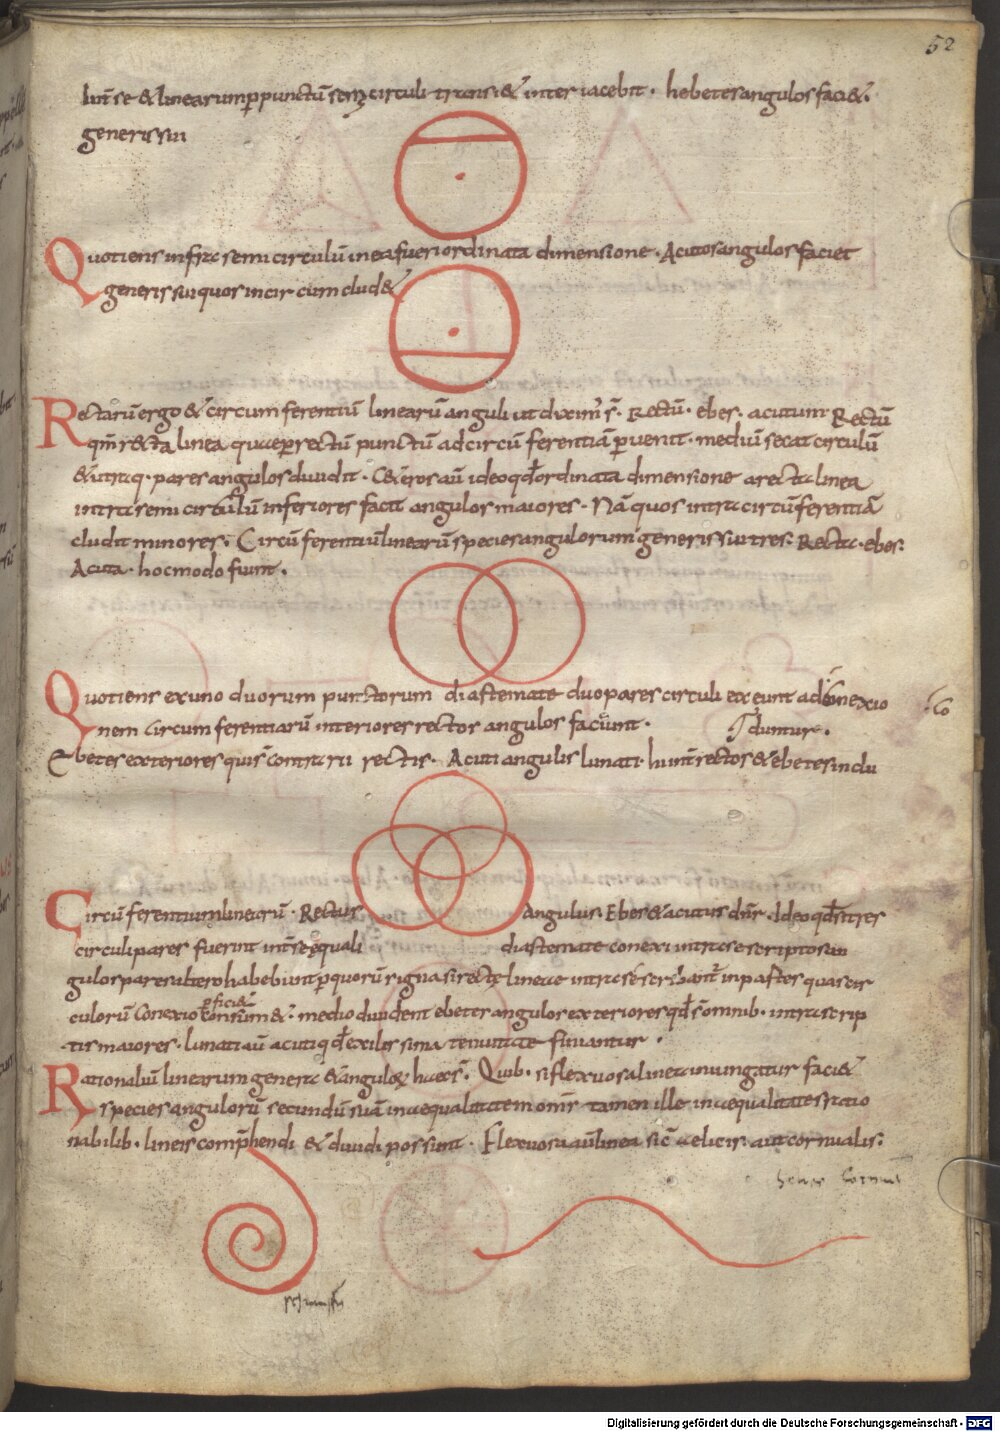 52
lini se & linearum p punctū semicirculi transi& inter iacebit. hebetes angulos faci&.
generis sui
Quotiens infra semi circulū linea fueri ordinata dimensione. Acutos angulos faciet
generis sui quos in circum clud&
Rectarū ergo & circum ferentiū linearū anguli ut diximꝰ s̄. Rectū. ebes. acutum. Rectū
qm̄ recta linea quae per rectū punctū ad circū ferentiā puenit. mediū secat circulū
& utraq. pares angulos diuidit. Ceteros aū ideo qđ ordinata dimensione a recta linea
intra semi circulū inferiores facit angulos maiores. Nā quos intra circū ferentiā
cludit minores. Circū ferentiū linearū species angulorum generis sui tres. Recta. ebes.
Acuta. hoc modo fiunt.
Quotiens ex uno duorum punctorum diastemate duo pares circuli exeunt ad conexio
nem circum ferentiarū interiores rectos angulos faciunt. duntur.
Ebetes exteriores quis contrarii rectis. Acuti angulis lunati. hunt rectos & ebetes inclu
Circū ferentium linearū. Rectus angulus. Ebes & acutus dn̄r. Ideo qđ si tres
circuli pares fuerint int se equali diastemate conexi intra se scriptos an
gulos pares ultero habebunt p quorū signa si recte lineae intra se scribant in partes quas cir
culorū Conexio perfici& medio diuident ebetes angulos exteriores qđ s̄ omnib. intra scrip
tis maiores. lunati aū acuti qđ exilissima tenuitate finiantur.
Rationaliū linearum genera & anguloꝝ haec s̄. Quib. si flexuosa linea iniungatur faci&
species angulorū secundū suā inaequalitatem omīs tamen ille inaequalitates ratio
nabilib. lineis comp̄hendi & diuidi possunt. Flexuosa aū linea sic̄ aelicis. aut cornualis.